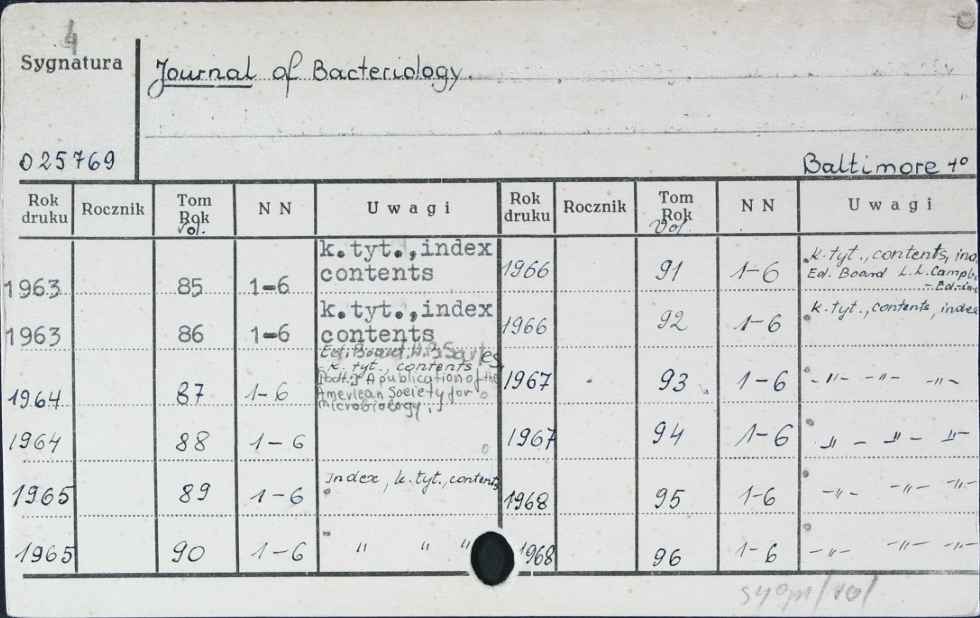 4
Sygnatura
Journal of Bacteriology.
025769
Baltimore 4°
Rok druku Rocznik Tom Rok Vol. N N Uwagi Rok druku Rocznik Tom Rok Vol. N N Uwagi
1963 85 1-6 k.tyt., index contents
1963 86 1-6 k.tyt., index contents
Ed. Board
1964 87 1-6 k. tyt., contents [Podt.:] A publication of the American Society for Microbiology.]
1964 88 1-6
1965 89 1-6 Index, k.tyt., contents
1965 90 1-6 " " "
1966 91 1-6 k.tyt., contents, ind
Ed. Board L.L. Campb
1966 92 1-6 k.tyt., contents, index
1967 93 1-6 -"- -"- -"-
1967 94 1-6 -"- -"- -"-
1968 95 1-6 -"- -"- -"-
1968 96 1-6 -"- -"- -"-